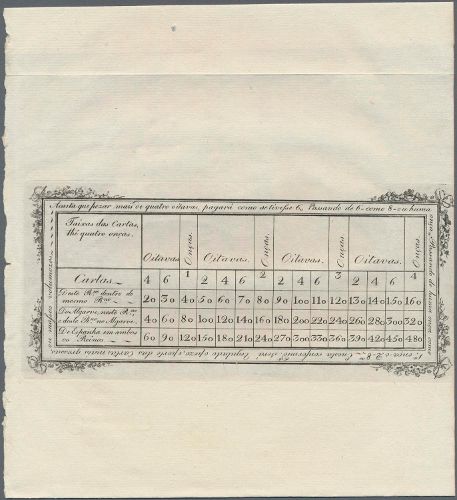 A carta que pezar mais de quatro oitavas, pagará como se tivesse 6, Passando de 6 como 8 = ou huma
onça, Passando de huma onça como
1ª onça e 2 8.ªs
Taixas das Cartas,
thé quatro onças.
Oitavas Onças. Oitavas. Onças. Oitavas. Onças Oitavas. onças.
Cartas 4 6 1 2 4 6 2 2 4 6 3 2 4 6 4
De neste R.no dentro do mesmo R.no 20 30 40 50 60 70 80 90 100 110 120 130 140 150 160
Do Algarve, neste R.no e deste R.no no Algarve 40 60 80 100 120 140 160 180 200 220 240 260 280 300 320
De Espanha em ambos os Reinos 60 90 120 150 180 210 240 270 300 330 360 390 420 450 480